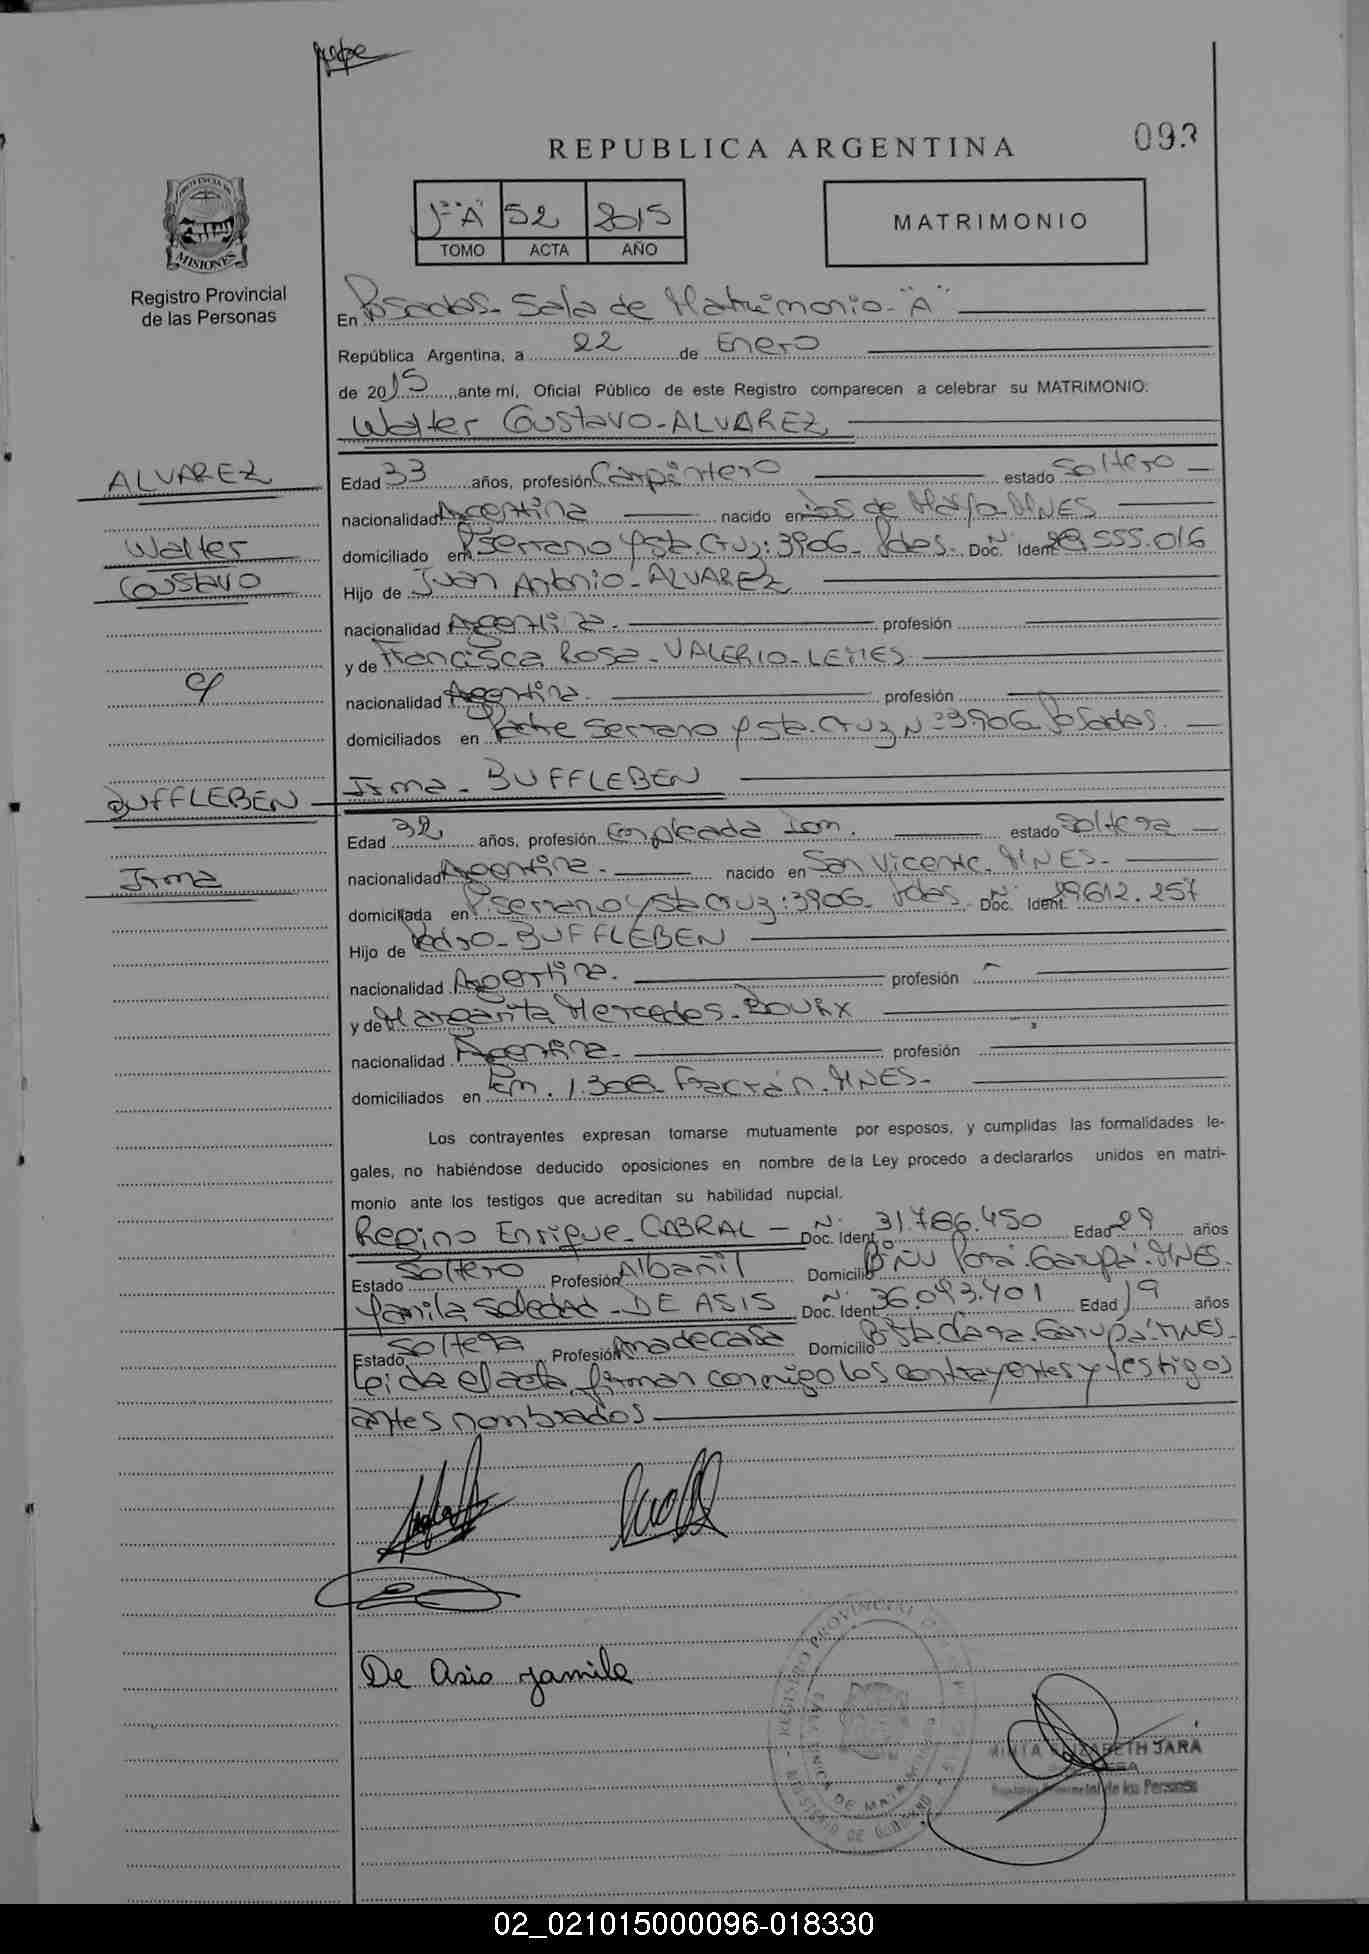 REPUBLICA ARGENTINA
093
1º "A" 52 2015
TOMO ACTA AÑO
MATRIMONIO
PROVINCIA DE
MISIONES
Registro Provincial
de las Personas
En Posadas - Sala de Matrimonio - "A"
República Argentina, a 22 de Enero
de 2015, ante mí, Oficial Público de este Registro comparecen a celebrar su MATRIMONIO:
Walter Gustavo - ALVAREZ
ALVAREZ
Walter
Gustavo
c/
BUFFLEBEN
Irma
Edad 33 años, profesión Carpintero estado Soltero
nacionalidad Argentina nacido en de MNES
domiciliado en P. Serrano y Sta. Cruz: 3906 - Pdas. Doc. Ident. Nº 555.016
Hijo de Juan Antonio - ALVAREZ
nacionalidad Argentina. profesión
y de Francisca Rosa - VALERIO - LEMES
nacionalidad Argentina. profesión
domiciliados en Padre Serrano y Sta. Cruz Nº 3906 Posadas.
Irma - BUFFLEBEN
Edad 32 años, profesión Empleada Dom. estado Soltera
nacionalidad Argentina. nacido en San Vicente. MNES.
domiciliada en P. Serrano y Sta Cruz: 3906 - Pdas. Doc. Ident. Nº 29612.257
Hijo de Pedro - BUFFLEBEN
nacionalidad Argentina. profesión
y de Margarita Mercedes -
nacionalidad Argentina. profesión
domiciliados en Km. 1.308 - Fracrán. MNES.
Los contrayentes expresan tomarse mutuamente por esposos, y cumplidas las formalidades le-
gales, no habiéndose deducido oposiciones en nombre de la Ley procedo a declararlos unidos en matri-
monio ante los testigos que acreditan su habilidad nupcial.
Regino Enrique - CABRAL - Doc. Ident. Nº 31.766.450 Edad 29 años
Estado Soltero Profesión Albañil Domicilio Bº Ñu Porá. Garupá. MNES.
Yamila Soledad - DE ASIS Doc. Ident. Nº 36.093.401 Edad 19 años
Estado Soltera Profesión Ama de casa Domicilio Bº Sta. Clara. Garupá. MNES.
Leida el acta, firman conmigo los contrayentes y testigos
antes nombrados
De Asis Yamila
REGISTRO PROVINCIAL
MIRTA ELIZABETH JARA
Registro Provincial de las Personas
02_021015000096-018330